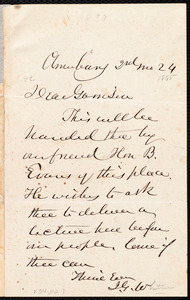 Amesbury 2nd mo 24
Dear Garrison
This will be
handed thee by
our friend Hon. B.
Evans of this place.
He wishes to ask
thee to deliver a
lecture here before
our people. Come if
thee can
Thine ever
J.G.W.